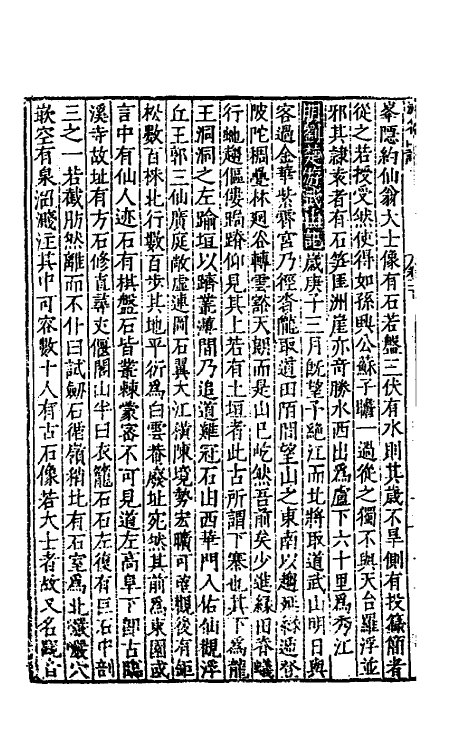 峯隱約仙翁大士像有石若盤三伏有水則其歲不旱側有投龜簡者
從之若授受然使得如孫興公蘇子瞻一過從之獨不與天台羅浮並
邪其隷袁者有石笋匡洲崖亦奇勝水西出爲盧下六十里爲秀江
明劉楚游武山記歲庚子三月既望予絶江而北將取道武山明日與
客過金華紫霄宮乃徑峇龍取道田陌間望山之東南以趨延緑逼登
陂陀稠疊林廻谷轉雲谿天朗而是山已屹然吾前矣少進緑田脊蟻
行虵趨傴僂跼蹐仰見其上若有土垣者此古所謂下寨也其下爲龍
王洞洞之左踰垣以躋叢薄間乃追道雞冠石山西華門入佑仙觀浮
丘王郭三仙廣庭敞虛連岡石翼大江橫陳境勢宏曠可硒觀後有鉅
松數百株北行數百步其地平衍爲白雲菴廢址宛然其前爲東園或
言中有仙人迹石有棋盤石皆叢棘蒙密不可見道左高阜下卽古臨
溪寺故址有方石修直尋丈偃閣山半曰衣籠石石左復有巨石中剖
三之一若截肪然離而不仆曰試劒石循嶺稍北有石室爲北巖巖穴
嵌空有泉涓濺注其中可容數十人有古石像若大士者故又名觀音